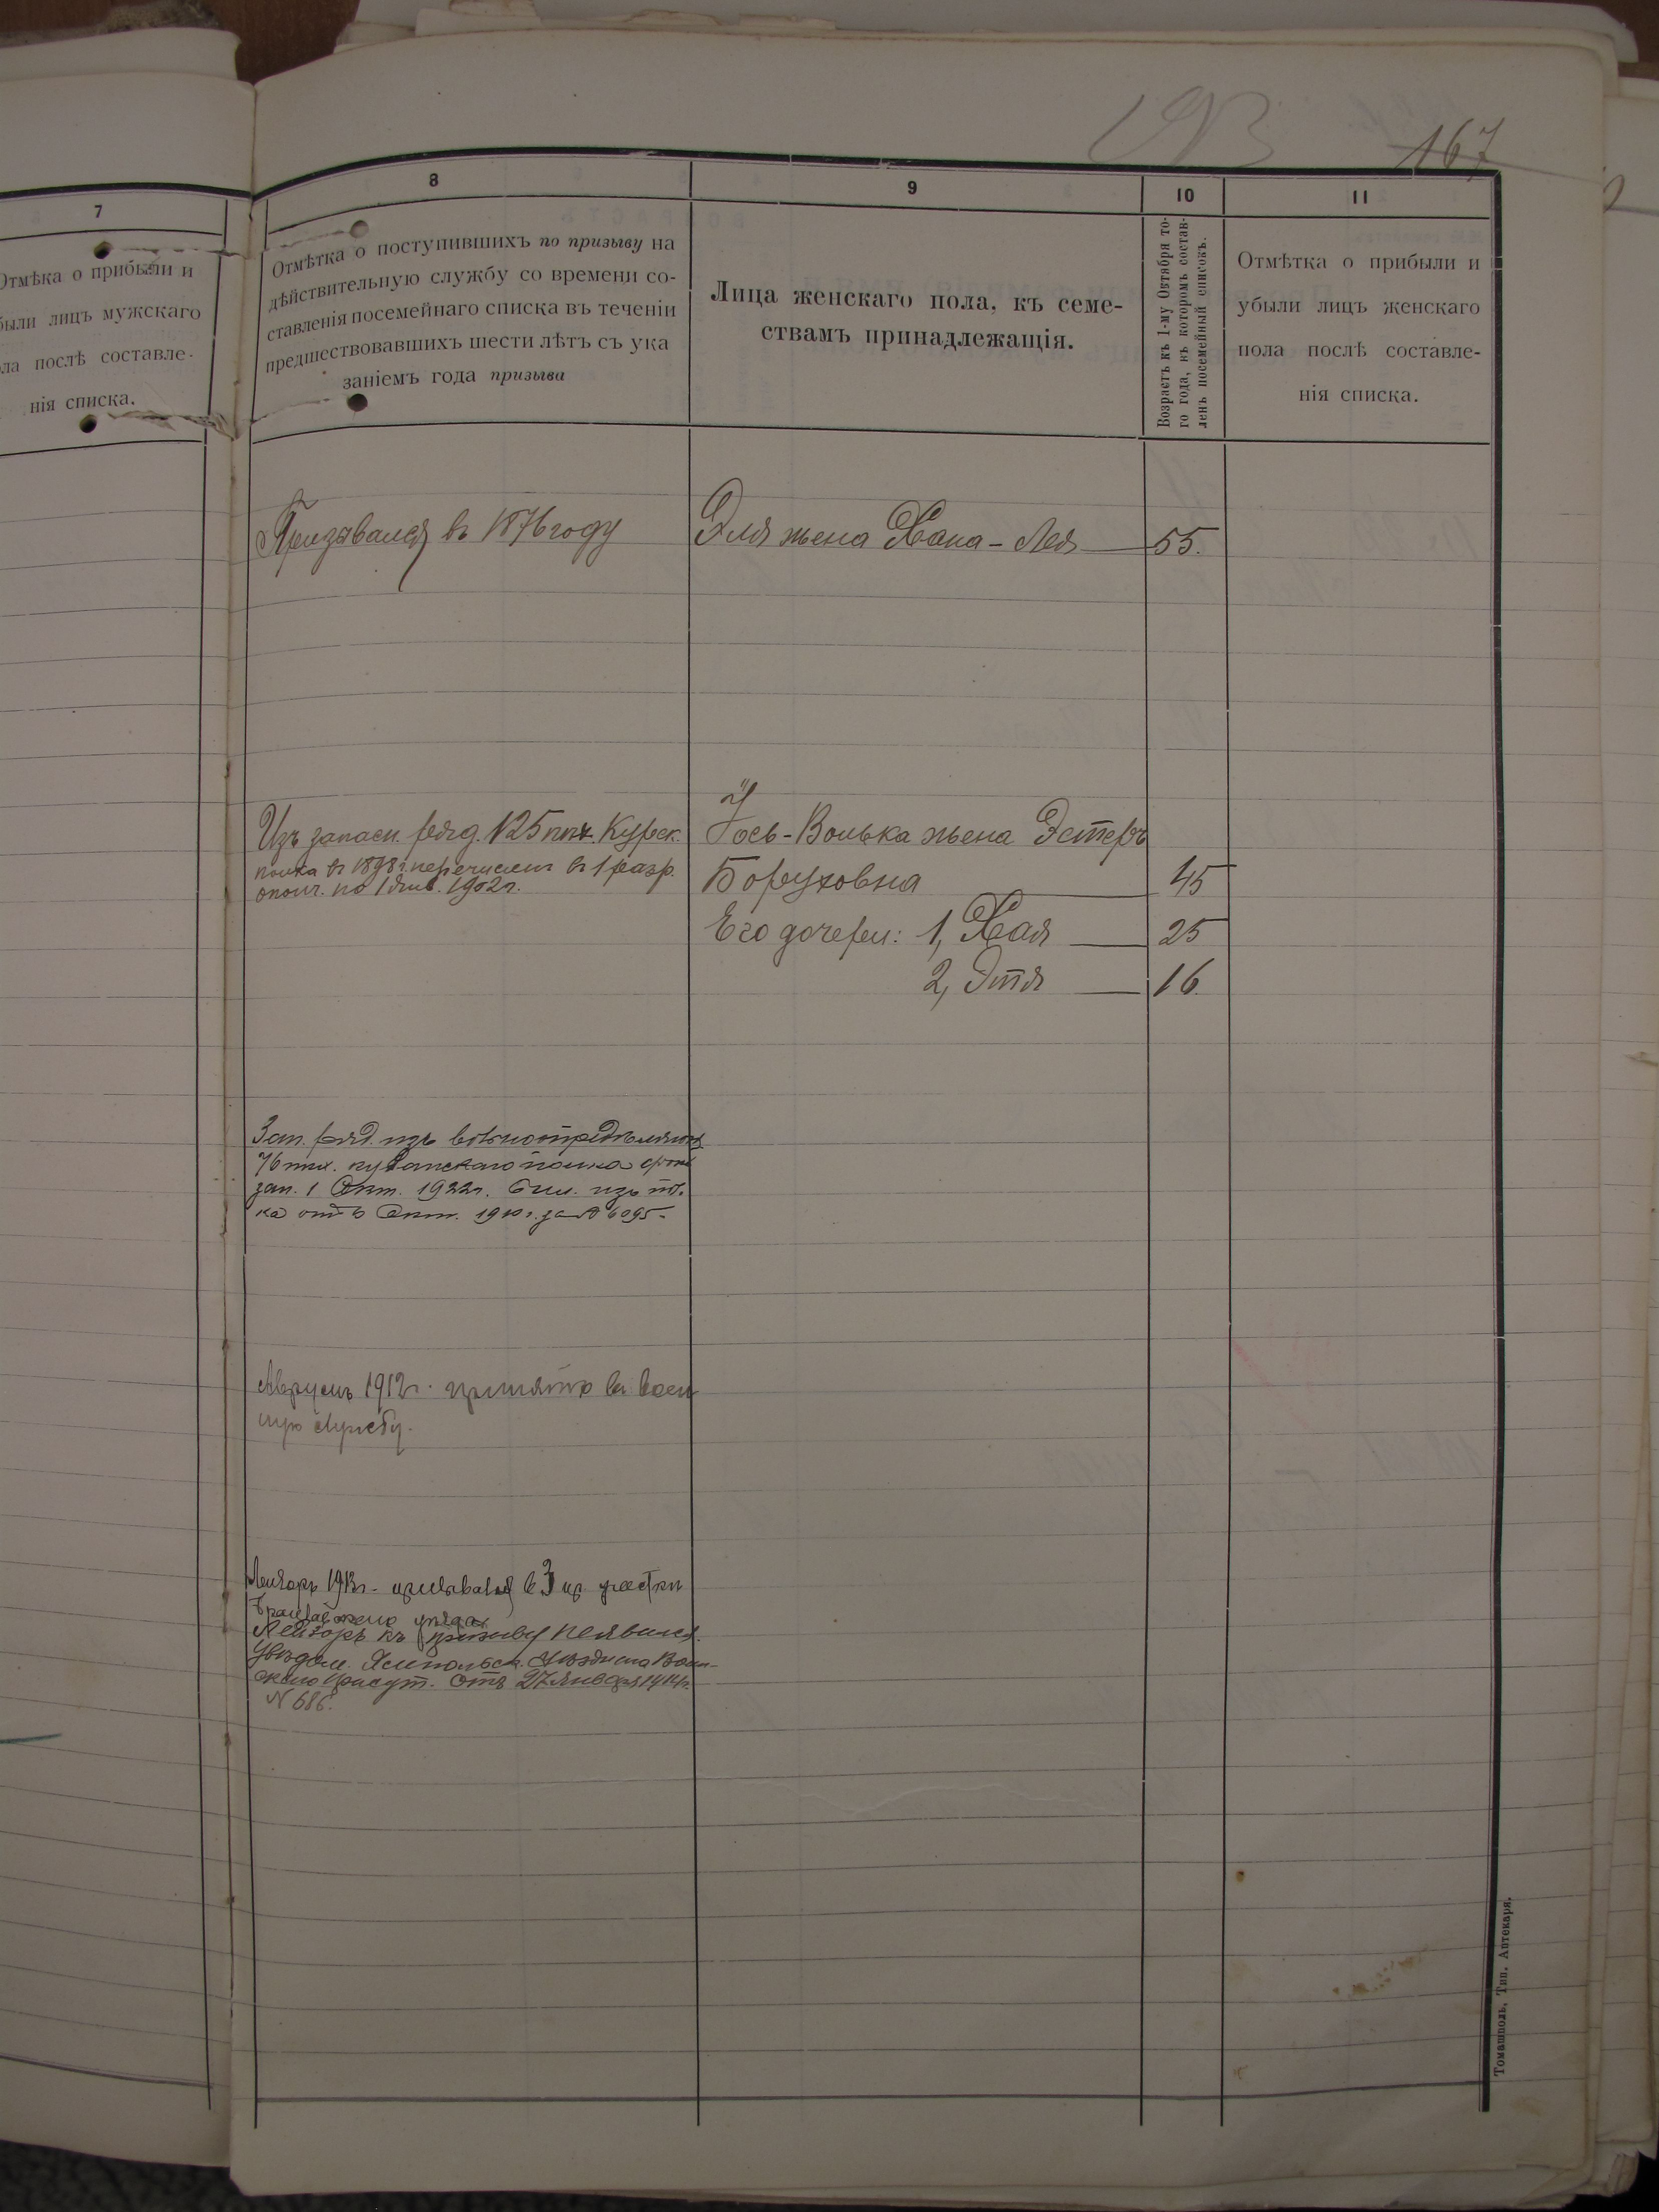 193
167
7
Отмѣка о прибыли и
были лицъ мужскаго
ла послѣ составле-
нія списка.
8
Отмѣтка о поступившихъ по призыву на
дѣйствительную службу со времени со-
ставленія посемейнаго списка въ теченіи
предшествовавшихъ шести лѣтъ съ ука
заніемъ года призыва
9
Лица женскаго пола, къ семе-
ствамъ принадлежащія.
10
Возрастъ къ 1-му Октября то-
го года, въ которомъ состав-
ленъ посемейный списокъ.
11
Отмѣтка о прибыли и
убыли лицъ женскаго
пола послѣ составле-
нія списка.
Призывался въ 1876 году
Эля жена Хана-Лея 55.
Изъ запасн. ряд. 125 пѣх. Курск.
полка въ 1898 г. перечислен въ 1 разр.
ополч. по 1 Янв. 1902 г.
Іось-Волька жена Эстеръ
Боруховна 45
Его дочери: 1, Хая 25
2, Этя 16
Зап. ряд. изъ вольноопредѣляющ
76 пѣх. кубанскаго полка срокъ
зап. 1 1922 г. изъ
ка 1910 г. за № 6095
Аврумъ 1912 г. принятъ въ воен
ную службу.
Лейзоръ 1913 г. призывался въ 3 пр. участкѣ
уѣзда
Лейзоръ къ призыву неявился
Увѣдом. Ямпольск. Уѣзднаго Воин-
скаго Присут. отъ 27 января 1914 г.
№ 686.
Томашполь, Тип. Аптекаря.